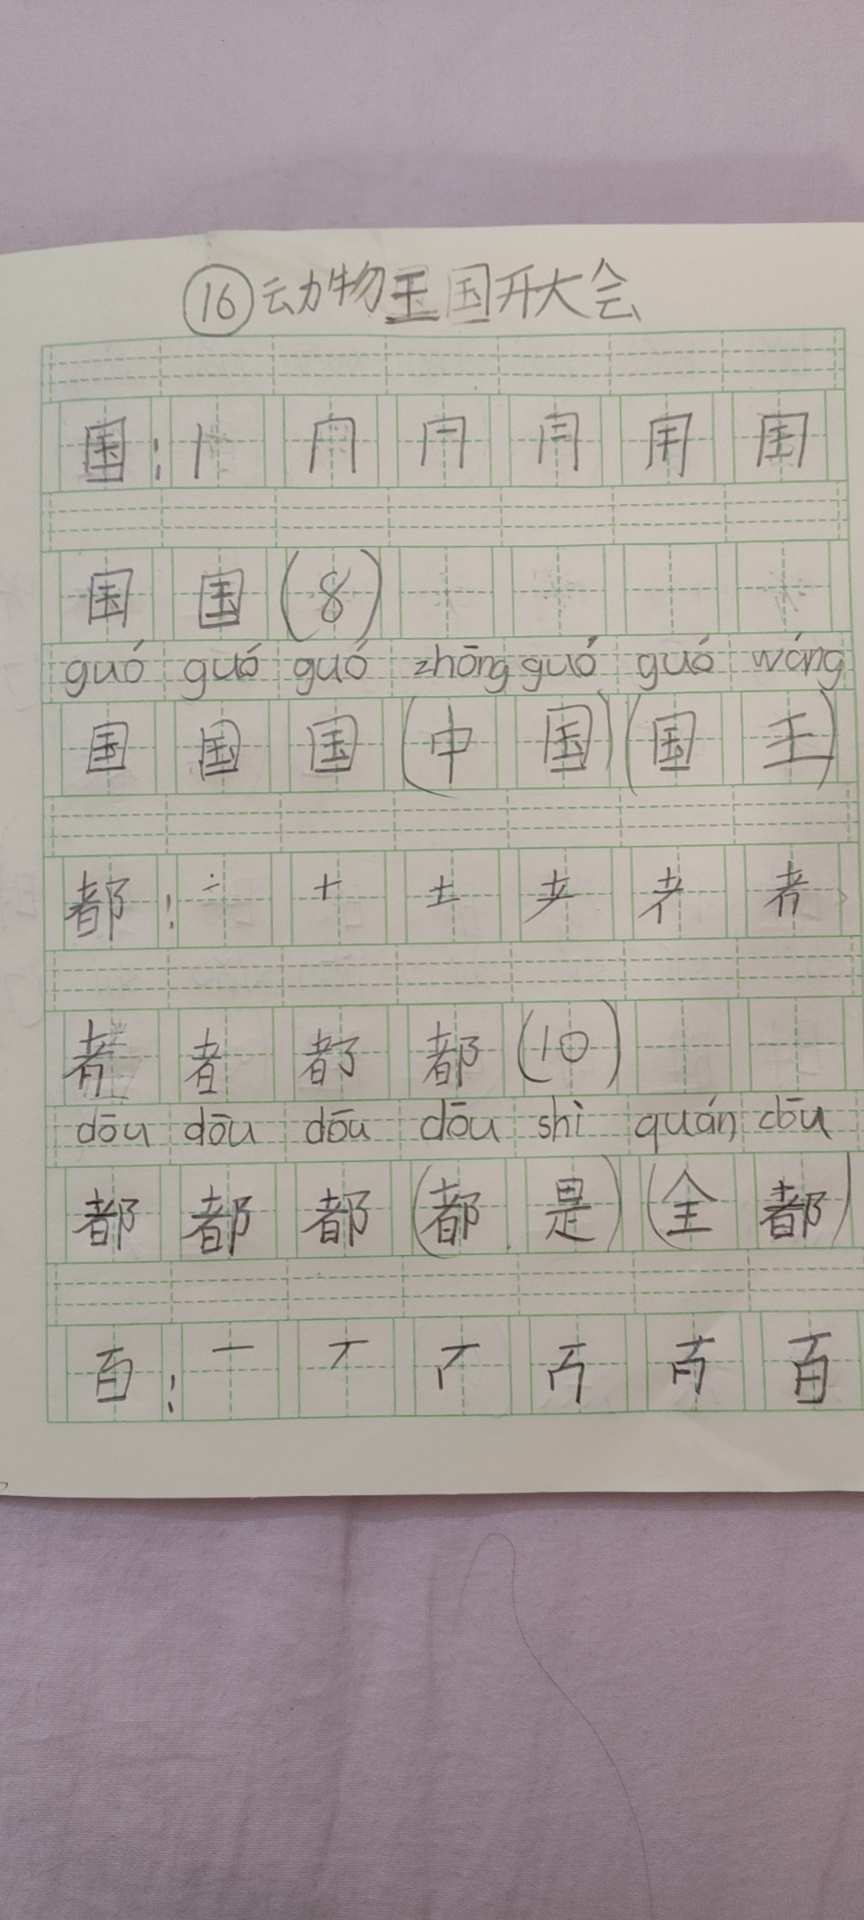 ⑯动物王国开大会
国：丨 冂 冂 月 用 国
国 国 (8)
guó guó guó zhōng guó guó wáng
国 国 国 (中 国) (国 王)
都：一 十 土 耂 耂 者
者 者 都 都 (10)
dōu dōu dōu dōu shì quán dōu
都 都 都 (都 是) (全 都)
百：一 丆 百